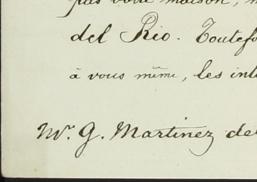 pas votre maison, 
del Rio. Toutefo
à vous même, les int
Mr. G. Martinez de